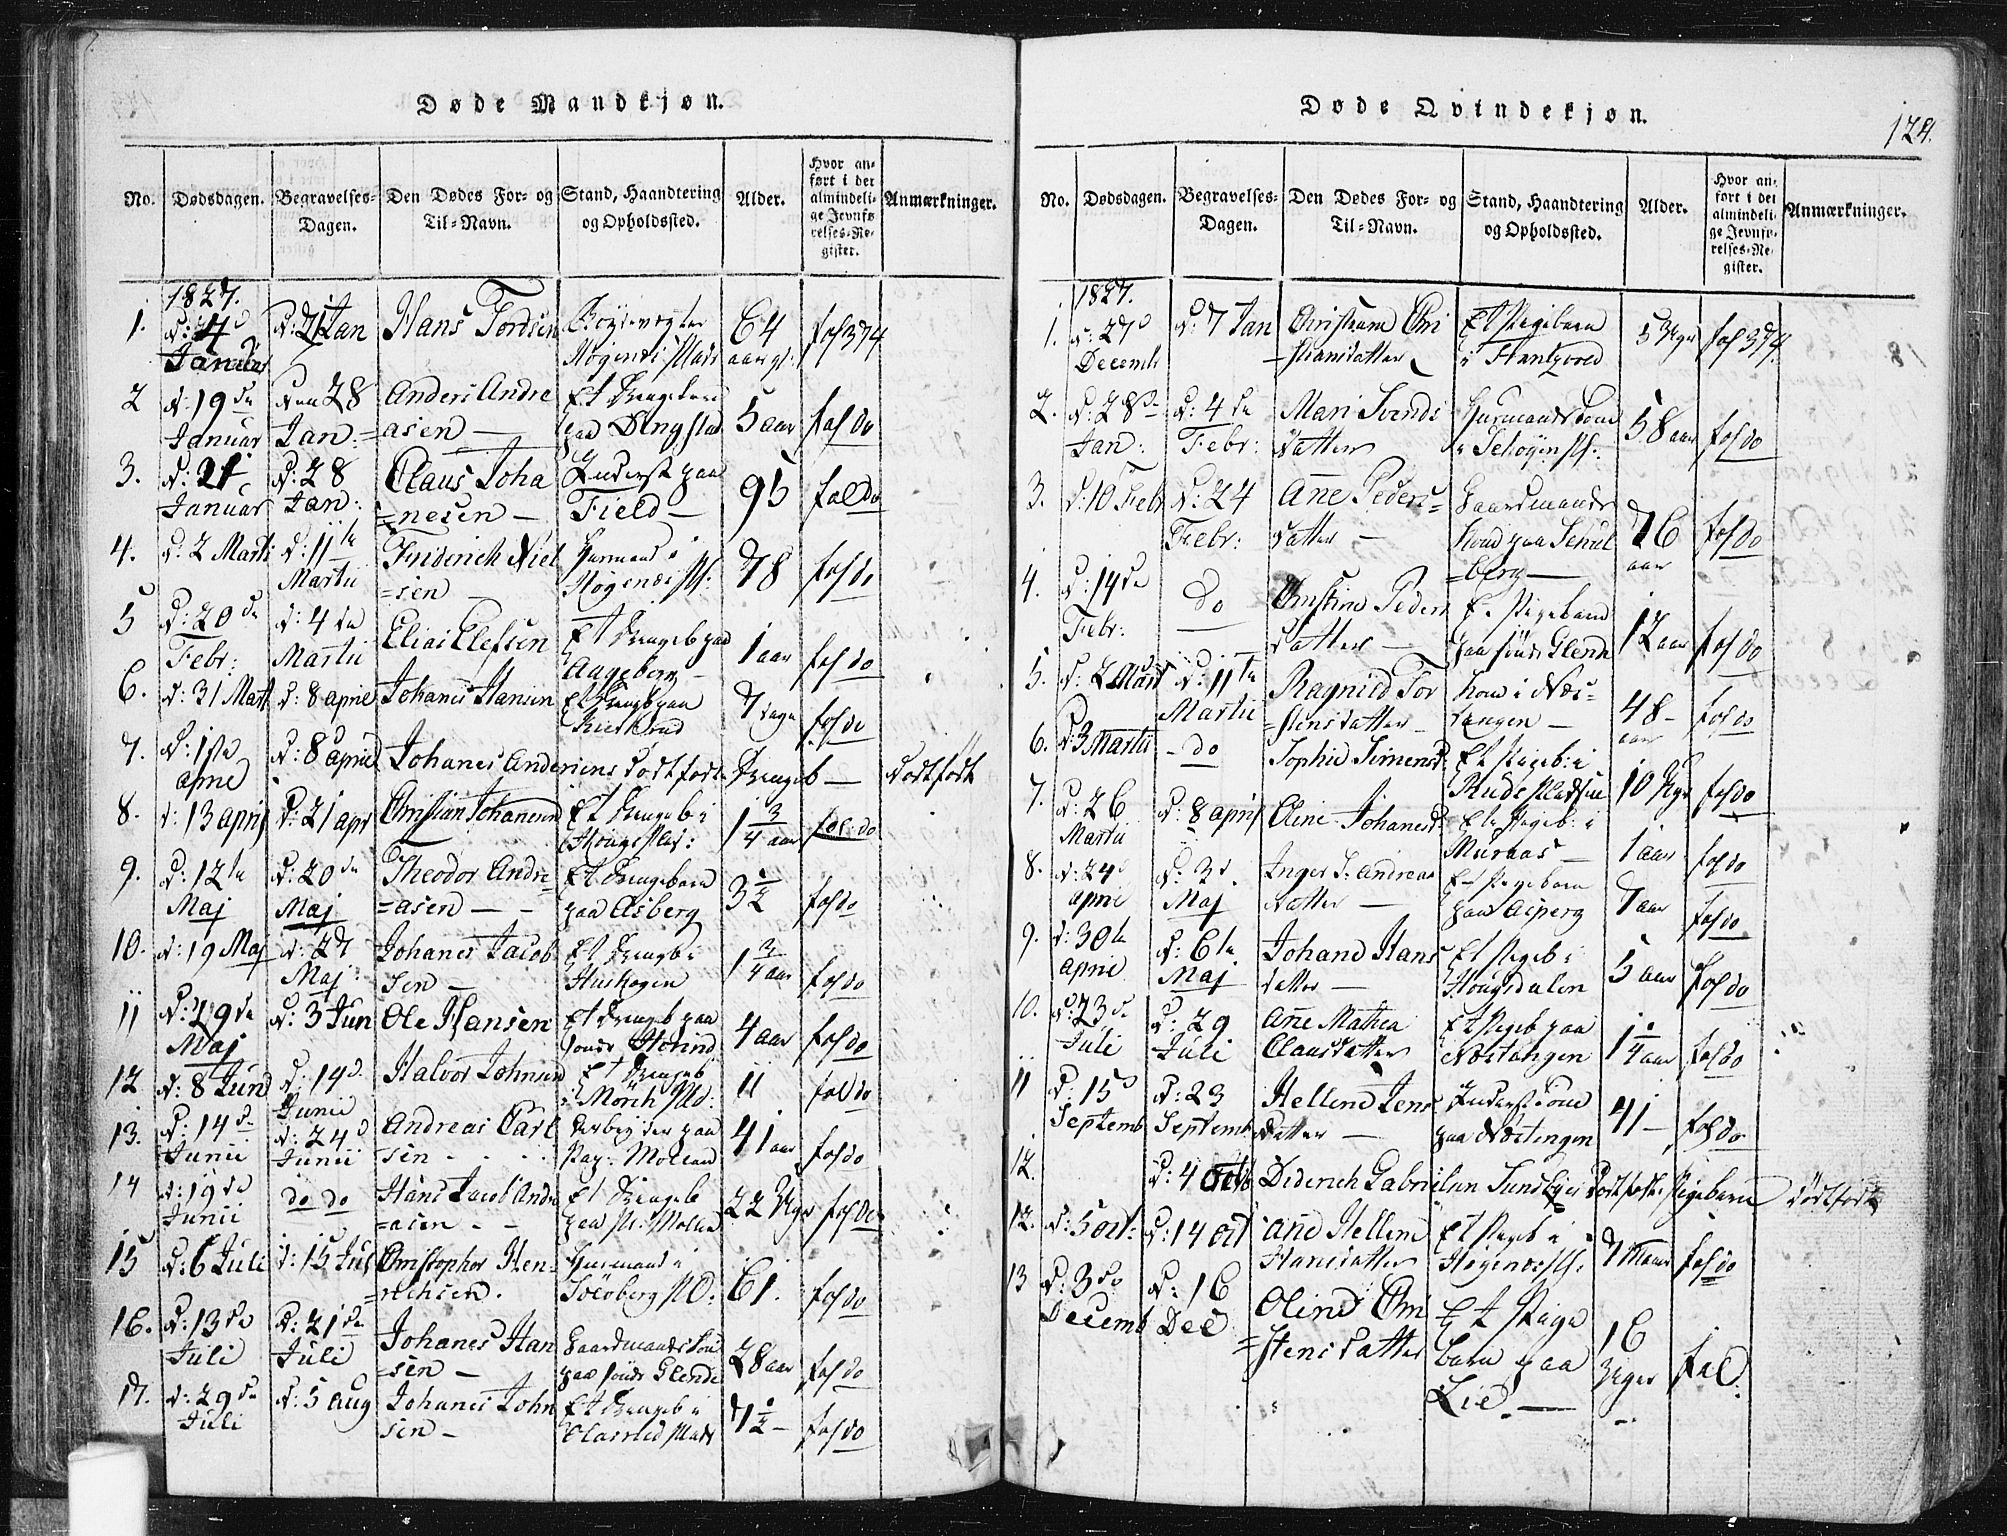 Døde Mandkjøn.
No.
Dødsdagen.
Begravelses-
Dagen.
Den Dødes For- og
Til-Navn.
Stand, Haandtering
og Opholdssted.
Alder.
Hvor an-
ført i det
almindeli-
ge Jevnfø
relses-Re-
gister.
Anmærkninger.
1827.
1.
Januar
d: 21 Jan
Hans Tordsen
64
aar gl:
fol 374
2
d: 19de
Januar
den 28
Jan:
Anders Andre
=asen —
Et Drengebarn
paa Dingstad
5 aar
fol do
3.
d: 21
Januar
d: 28
Jan:
Claus Joha
=nesen —
Inderst paa
Field —
95
fol do
4.
d: 2 Marti
d: 11te
Martii
Friderich Niel
=sen —
Huusmand i
78
fol do
5
d: 20de
Febr:
d: 4de
Martii
Elias Elefsen
Et Drengeb paa
Aageberg —
1 aar
fol do
6.
d: 31 Marti
d: 8 april
Johanes Hansen
Et Drengeb paa
7 dage
fol do
7.
d: 1ste
april
d: 8 april
Johanes Andersens dødfødt Drengeb —
dødfødt
8.
d: 13 april
d: 21 apr
Christian Johanesen
Et Drengeb i
1 3/4 aar
fol: do
9.
d: 12te
Maj
d: 20de
Maj
Theodor Andre
=asen — —
Et Drengebarn
paa Asberg
3 1/2
fol do
10.
d: 19 Maj
d: 27
Maj:
Johanes Jacob
sen —
Et Drengeb i
Huskogen
1 3/4 aar
fol do
11
d: 29de
Maj
d: 3 Jun
Ole Hansen
Et Drengeb paa
4 aar
fol do
12
d: 8 Juni
d: 14de
Junii
Halvor Johnsen
Et Drengeb
i Mörch Pld:
11
fol do
13.
d: 14de
Junii
d: 24d
Junii
Andreas Carl
sen
41 aar
fol do
14
d: 19de
Junii
do do
Hans Jacob Andre
=asen - -
Et Drengeb
22 Uger
fol do
15
d: 6 Juli
d: 15 Jul
Christopher Hen-
richsen.
Huusmand i
61.
fol do
16.
d: 13de
Juli
d: 21de
Juli
Johanes Han
=sen —
paa søndr Glende
28 aar
fol do
17.
d: 29de
Juli
d: 5 aug
Johanes John
sen —
Et Drengeb i
7 1/2 —
fol do
Døde Qvindekjøn.
124.
No.
Dødsdagen.
Begravelses-
Dagen.
Den Dødes For- og
Til-Navn.
Stand, Haandtering
og Opholdssted.
Alder.
Hvor an-
ført i det
almindeli-
ge Jevnfø-
relses-Re-
gister.
Anmærkninger.
1827.
1.
d: 27d
Decemb
d: 7 Jan
Christiane Chri
=stiansdatter
Et Pigebarn
fol 374
2.
d: 28de
Jan:
d: 4de
Febr:
Mari Svends
datter
58 aar
fol do
3.
d: 10 Febr
d: 24
Febr:
Ane Peders=
datter —
Gaardmands
76
aar
fol do
4.
d: 14de
Febr:
do
Christine Peders
datter —
Et Pigebarn
paa søndr Glende
12 aar
fol do
5.
d: 2 Marti
d: 11te
Martii
Ragnild Tor
=stensdatter —
kone i Næs-
tangen —
48 -
aar
fol do
6.
d: 3 Martii
- do
Sophie Simensd:
Et Pigeb: i
Rude Pladsen
10 Uger
fol do
7.
d: 26
Martii
d: 8 april
Oline Johanesd:
Et Pigeb: i
Muraas —
1 aar
fol do
8.
d: 24d
april
d: 3d.
Maj
Inger S. Andreas
datter —
Et Pigebarn
paa Asperg
7 aar
fol do
9.
d: 30te
april
d: 6te
Maj
Johane Hans
datter —
Et Pigeb i
Hougsdalen
5 aar
fol do
10.
d: 23de
Juli
d: 29
Juli
Ane Mathea
Clausdatter
Et Pigeb paa
Næstangen
1 1/4 aar
fol do
11
d: 15d
Septemb
d: 23
Septemb
Hellene Jens
datter —
Inderst kone
paa Næstangen
41 —
fol do
12.
d: 4 Octb
Diderich Gabrielsen Sundbyes dødfødte Pigebarn
dødfødt
12.
d: 5 oct:
d: 14 oct
Ane Hellene
Hansdatter
Et Pigeb i
7 Maan
fol do
13
d: 3de
Decemb
d: 16
Dec
Oline Chri
=stensdatter
Et Pige
barn paa
Lie. —
16
Uger
fol: